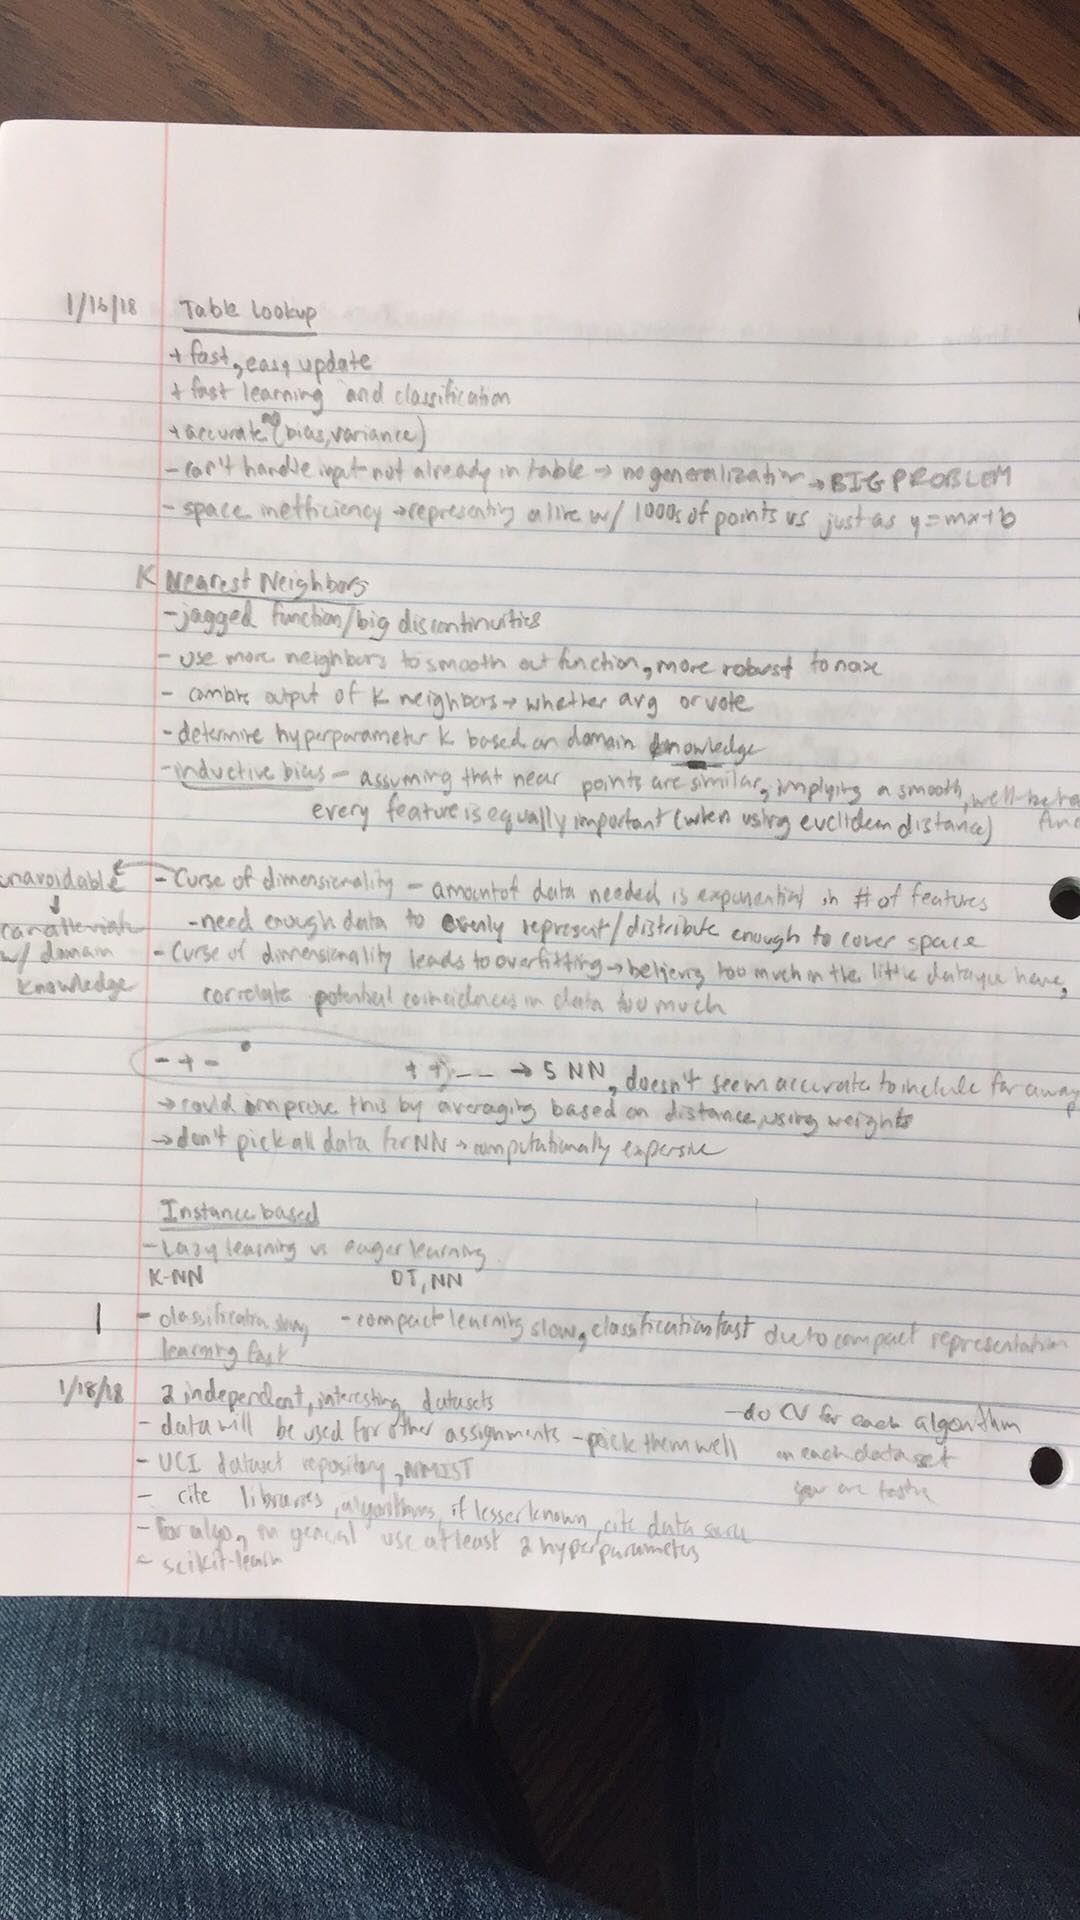 1/16/18 Table Lookup
+ fast, easy update
+ fast learning and classification
+ accurate (no bias, variance)
- can't handle input not already in table → no generalization → BIG PROBLEM
- space inefficiency → representing a line w/ 1000s of points vs just as y=mx+b
K Nearest Neighbors
- jagged function/big discontinuities
- use more neighbors to smooth out function, more robust to
- combine output of K neighbors → whether avg or vote
- determine hyperparameter K based on domain knowledge
- inductive bias - assuming that near points are similar, implying a smooth,
every feature is equally important (when using euclidean distance)
unavoidable - Curse of dimensionality - amount of data needed is exponential in # of features
↓
- need enough data to evenly represent/distribute enough to cover space
w/ domain
knowledge
- Curse of dimensionality leads to overfitting → believing too much in the little data you have,
correlate potential coincidences in data too much
- + - + + - - → 5 NN, doesn't seem accurate to include far away
→ could improve this by averaging based on distance, using weights
→ don't pick all data for NN → computationally expensive
Instance based
- Lazy learning vs eager learning
K-NN DT, NN
- classification slow, - compact learning slow, classification fast due to compact representation
learning fast
1/18/18 2 independent, interesting datasets
- do CV for each algorithm
- data will be used for other assignments - pick them well
on each dataset
- UCI dataset repository,
you are
- cite libraries, algorithms, if lesser known, cite data source
- For algo, in general use at least 2 hyperparameters
- scikit-learn